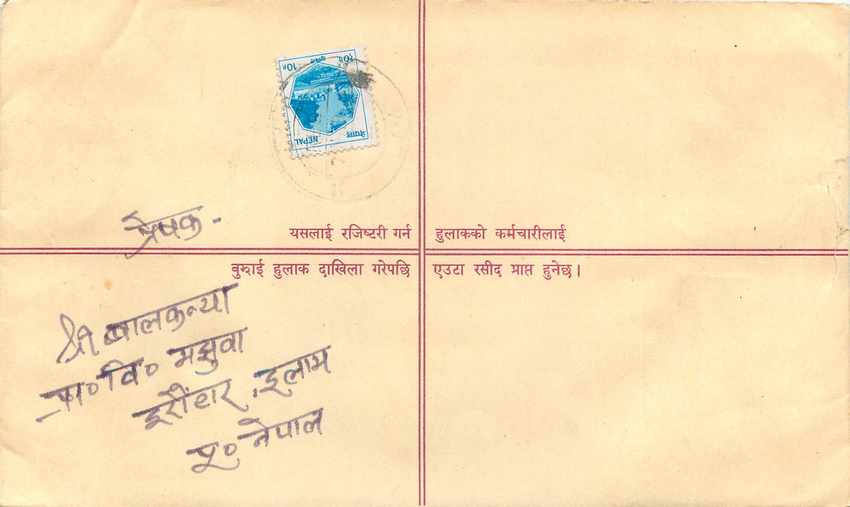 १०प. 10P
नेपाल NEPAL
प्रेषक -
यसलाई रजिष्टरी गर्न हुलाकको कर्मचारीलाई
बुझाई हुलाक दाखिला गरेपछि एउटा रसीद प्राप्त हुनेछ।
श्री बालकन्या
प्रा० वि० मझुवा
इरौंटार, इलाम
पू० नेपाल